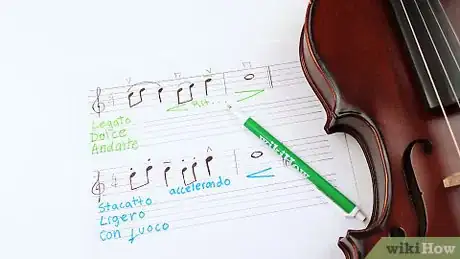 rit...
Legato
Dolce
Andante
wikiHow
accelerando
Stacatto
Ligero
con fuoco
wikiHow